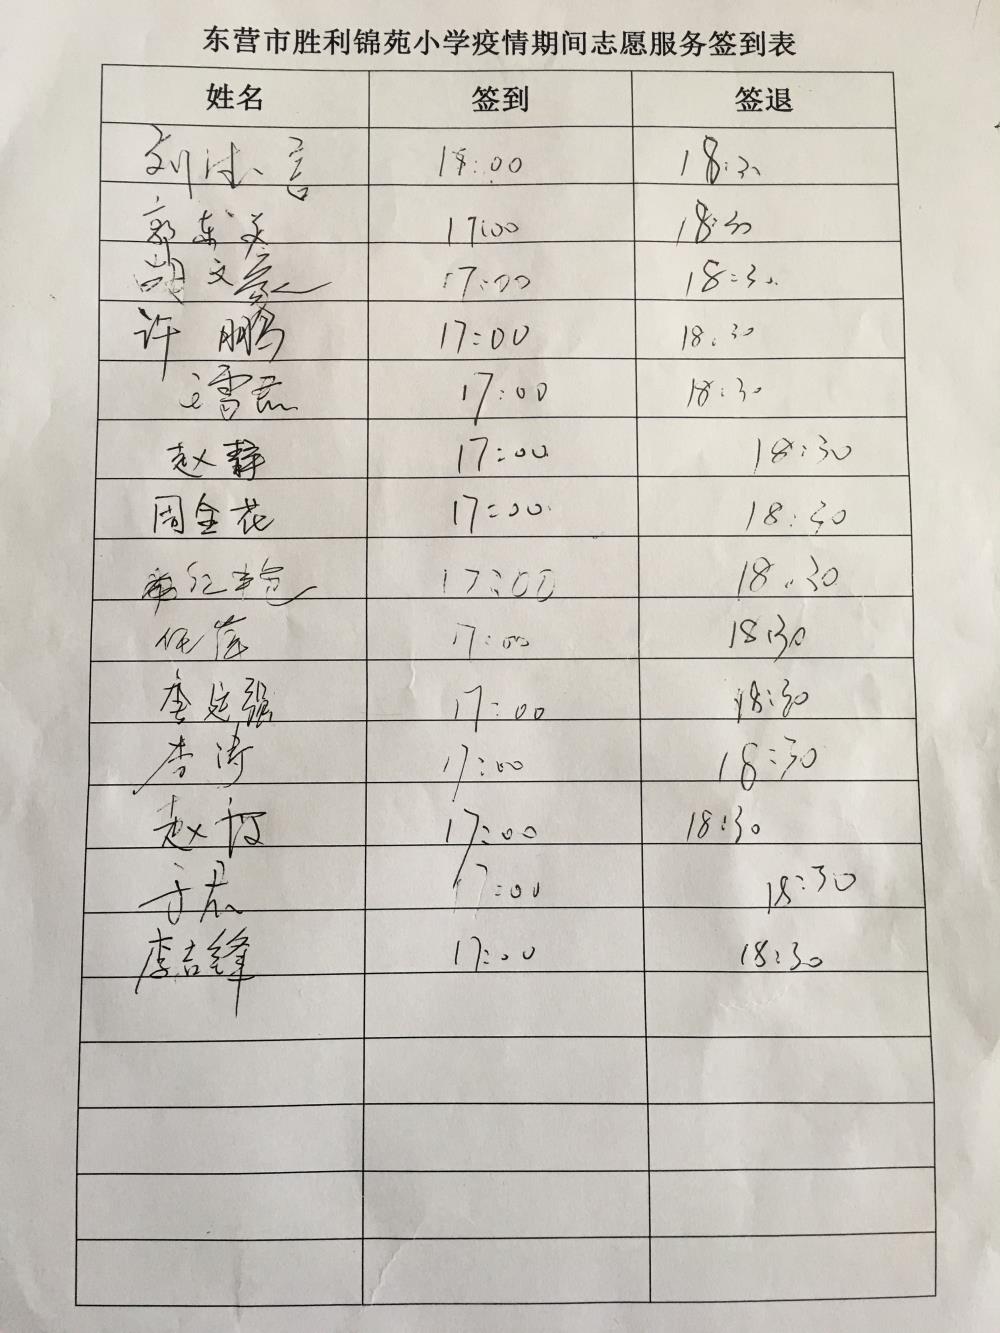 东营市胜利锦苑小学疫情期间志愿服务签到表
姓名 签到 签退
刘 18:30
郭东 17:00 18:30
胡文豪 17:00 18:30
许鹏 17:00 18:30
王雪磊 17:00 18:30
赵静 17:00 18:30
周金花 17:00 18:30
17:00 18:30
任萍 17:00 18:30
李延强 17:00 18:30
李涛 17:00 18:30
赵 17:00 18:30
于君 17:00 18:30
李吉锋 17:00 18:30